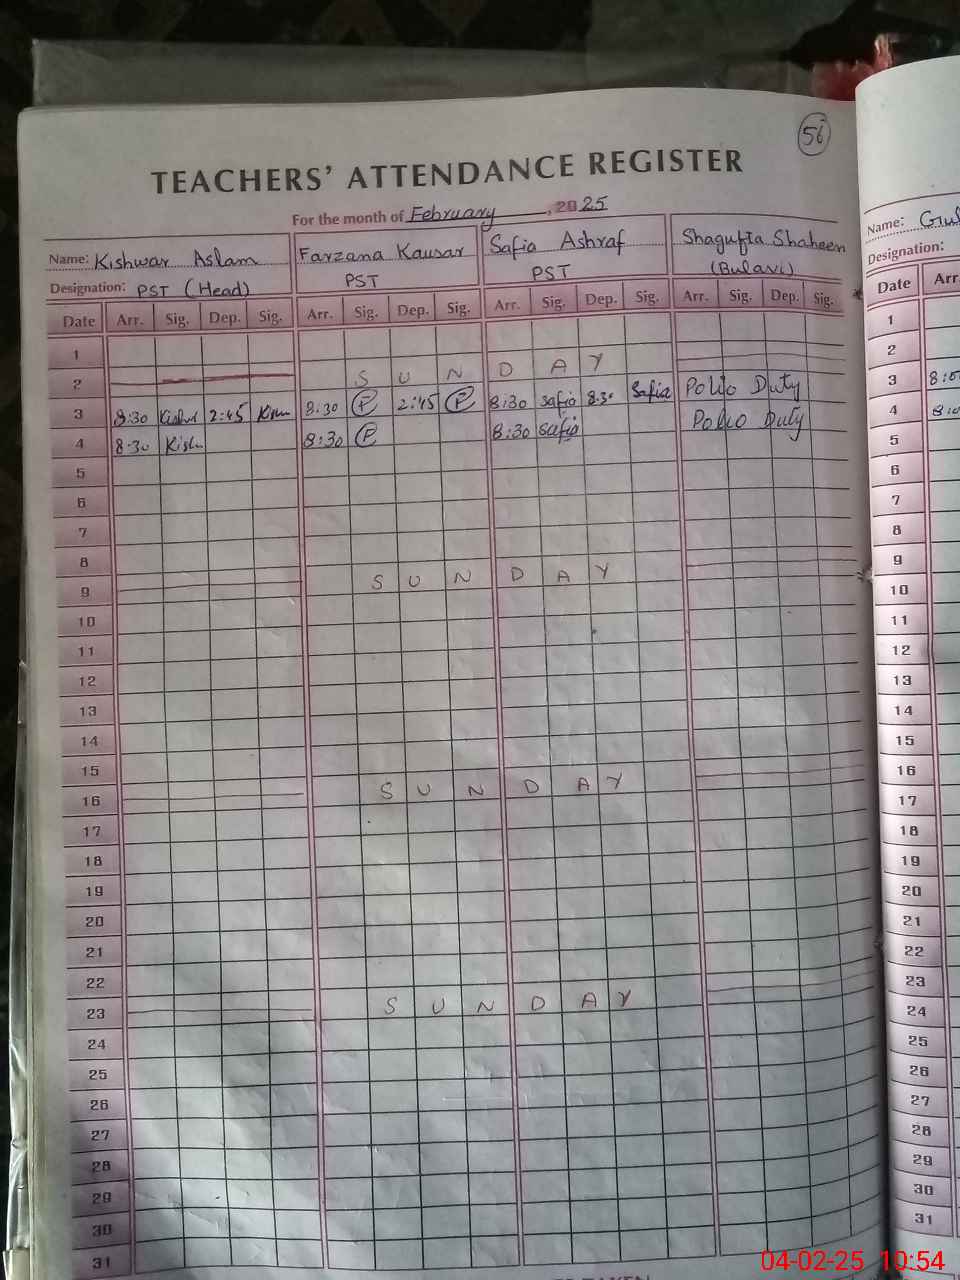 56
TEACHERS' ATTENDANCE REGISTER
For the month of February, 2025
Name: Kishwar Aslam Farzana Kausar Safia Ashraf Shagufta Shaheen
Designation: PST (Head) PST PST (Bulavi)
Date Arr. Sig. Dep. Sig. Arr. Sig. Dep. Sig. Arr. Sig. Dep. Sig. Arr. Sig. Dep. Sig.
1
2 S U N D A Y
3 8:30 2:45 8:30 P 2:45 P 8:30 Safia 8:30 Safia Polio Duty
4 8:30 8:30 P 8:30 Safia Polio Duty
5
6
7
8
9 S U N D A Y
10
11
12
13
14
15
16 S U N D A Y
17
18
19
20
21
22
23 S U N D A Y
24
25
26
27
28
29
30
31
Name:
Designation:
Date Arr.
1
2
3
4
5
6
7
8
9
10
11
12
13
14
15
16
17
18
19
20
21
22
23
24
25
26
27
28
29
30
31
04-02-25 10:54